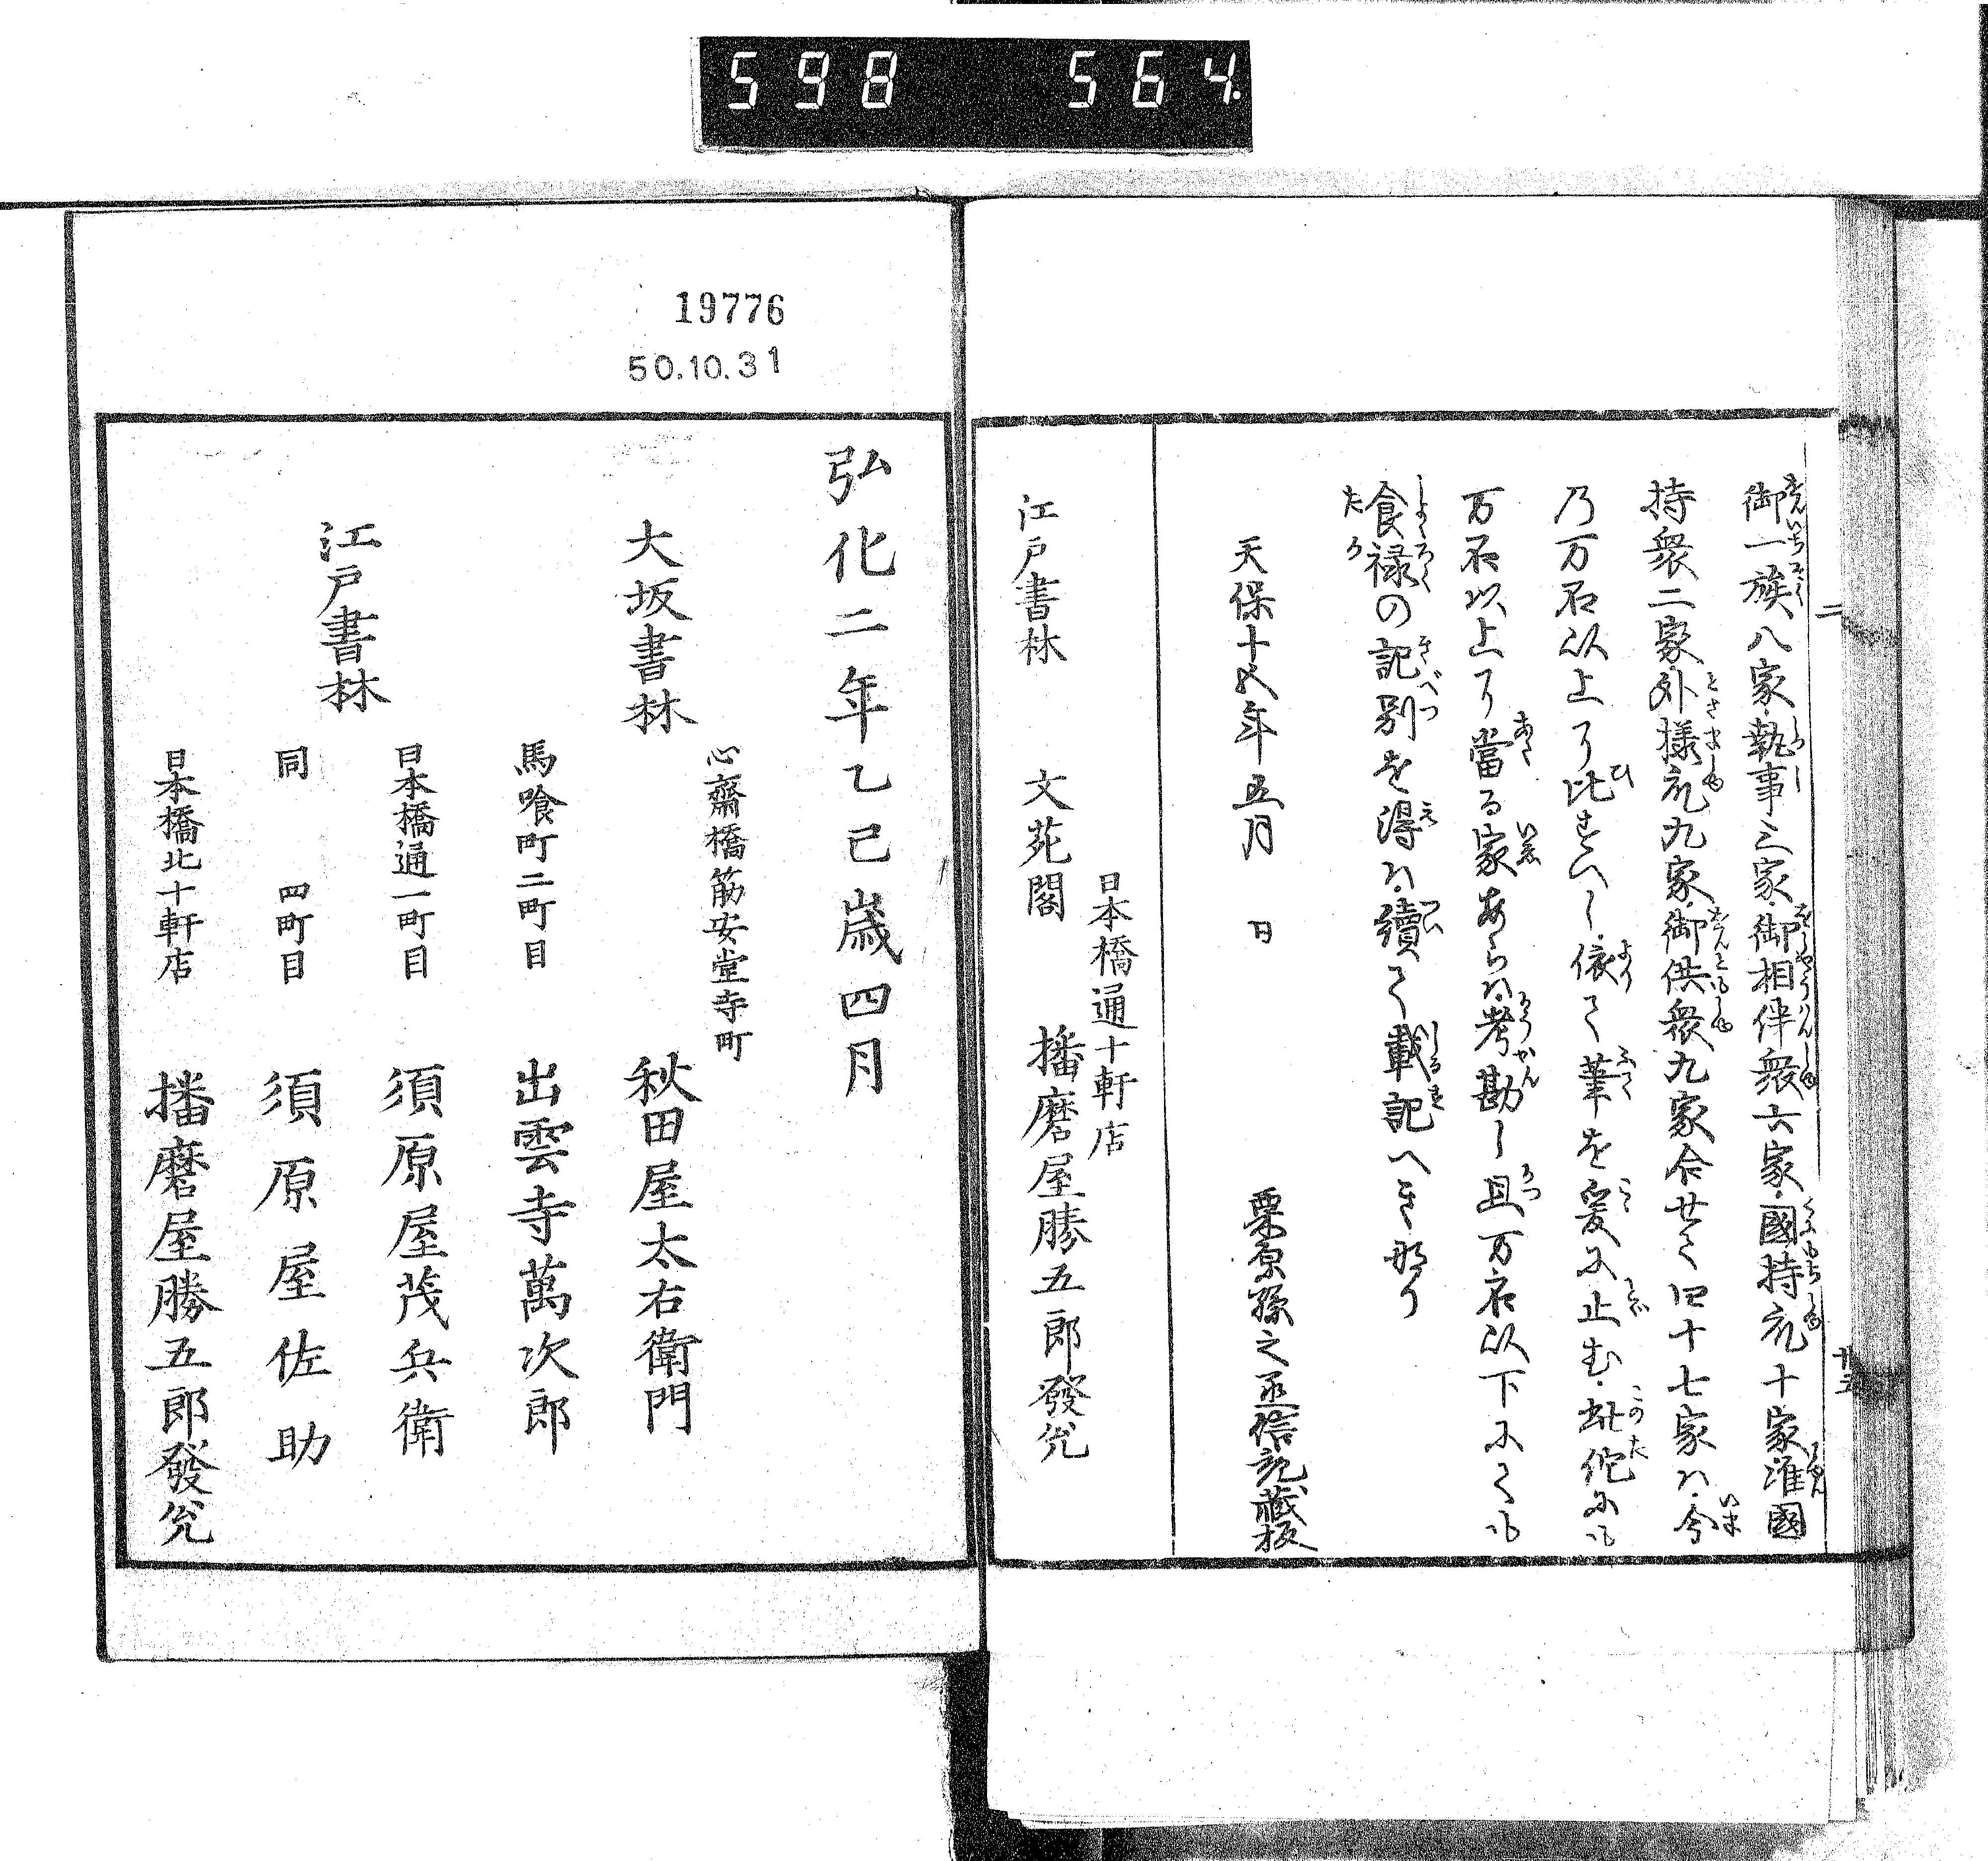 598 564.
二
廿五
御一族八家・執事三家・御相伴衆六家・國持衆十家准國
持衆二家外様衆九家・御供衆九家合せて四十七家ハ・今
乃万石以上に比すへし・依て筆を爰に止む・此他にも
万石以上に當る家あらハ・考勘し且万石以下にても
食禄の記別を得ハ・續て載記へき那り
天保十五年五月 日 栗原孫之丞信充蔵板
日本橋通十軒店
江戸書林 文苑閣 播磨屋勝五郎發兌
19776
50.10.31
弘化二年乙巳歳四月
心齋橋筋安堂寺町
大坂書林 秋田屋太右衛門
馬喰町二町目 出雲寺萬次郎
日本橋通一町目 須原屋茂兵衛
江戸書林
同 四町目 須原屋佐助
日本橋北十軒店 播磨屋勝五郎發兌